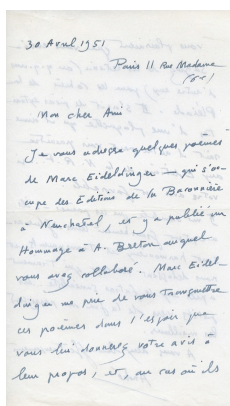 30 Avril 1951
Paris 11 Rue Madame
(VIe)
Mon cher Ami
Je vous adresse quelques poèmes
de Marc Eideldinger — qui s'oc-
cupe des Editions de la Baconnière
à Neuchatel, et y a publié un
Hommage à A. Breton auquel
vous avez collaboré. Marc Eidel-
dinger me prie de vous transmettre
ces poèmes dans l'espoir que
vous lui donnerez votre avis à
leur propos, et, au cas où ils